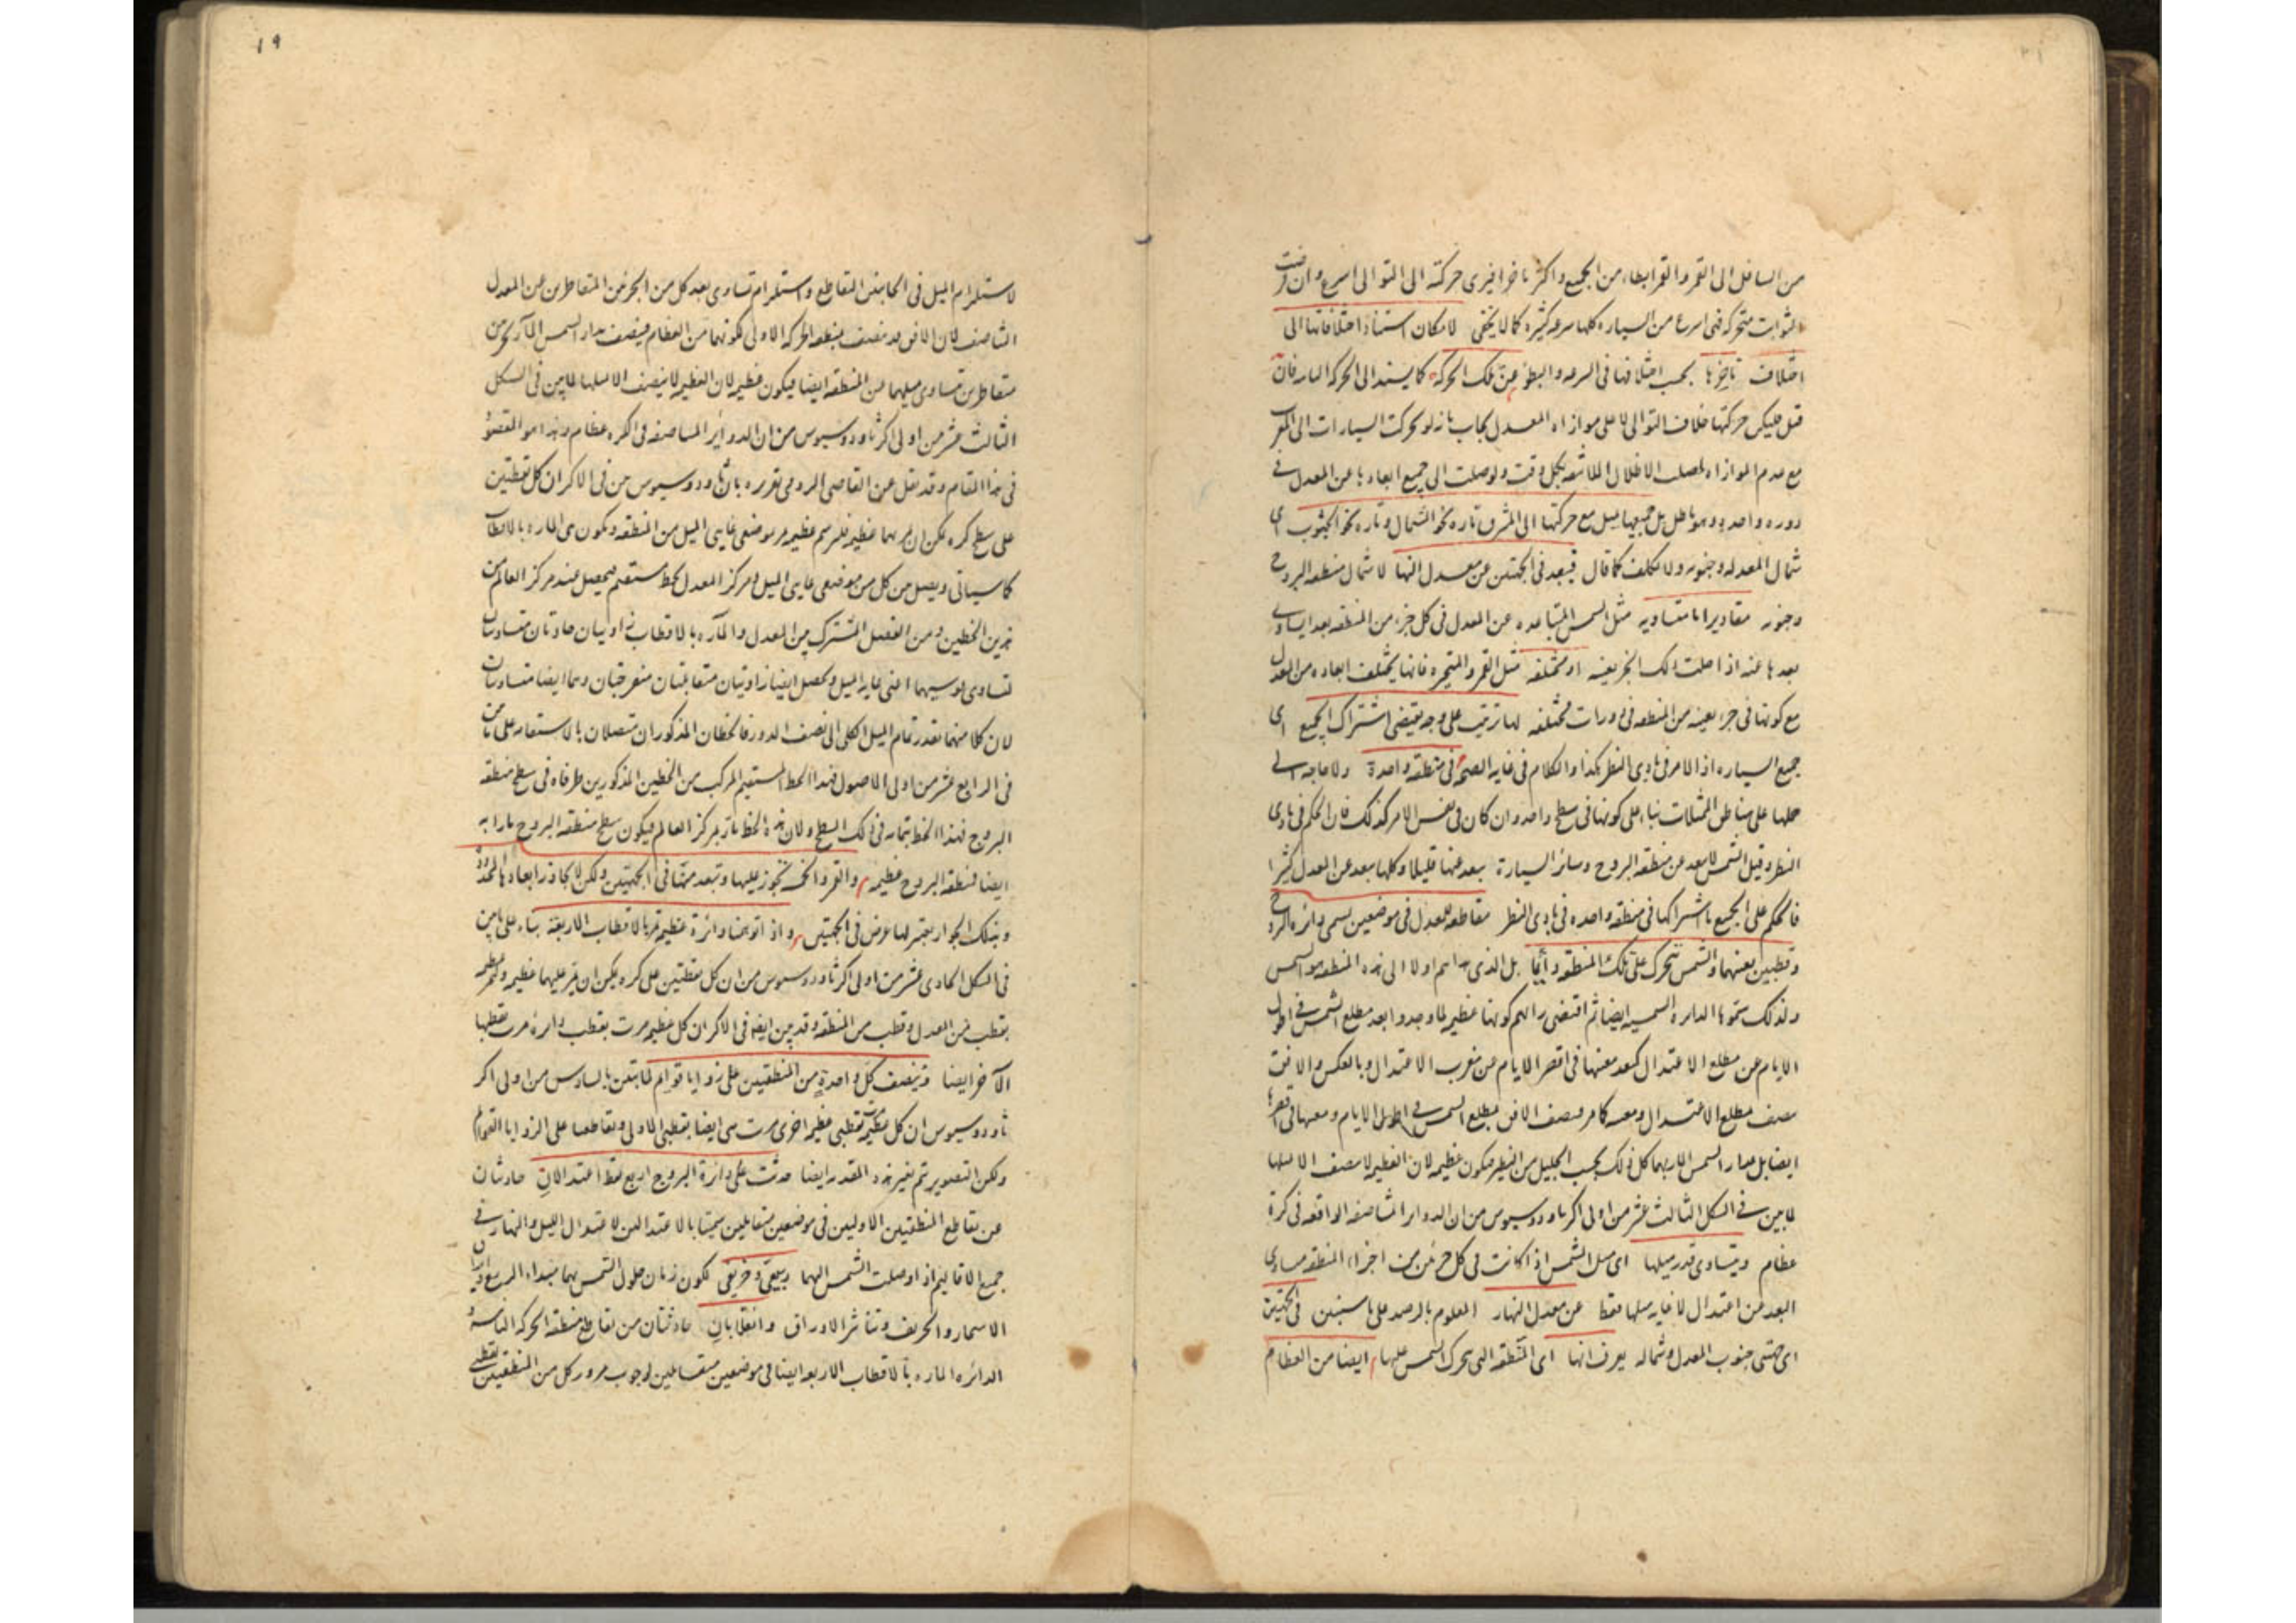 من السافل الى القمر والقمر ابطاء من الجميع واكثر تاخرا فيرى حركته الى التوالى اسرع وان فرضت
الثوابت متحركة فهى اسرع من السيارة كلها سرعة كثيرة كما لا يخفى لامكان استناد اختلافاتها الى
اختلاف تاخرها بحسب اختلافها فى السرعة والبطؤ عن تلك الحركة كما يستند الى الحركة فان
قيل حركتها خلاف التوالى لا على موازاة المعدل يجاب بانه لو تحركت السيارات الى المغرب
مع عدم الموازاة الاظلال بكل وقت ولوصلت الى جميع ابعادها عن المعدل فى
دورة واحدة وهو باطل بل جميعها يميل مع حركتها الى المشرق تارة نحو الشمال وتارة نحو الجنوب اى
شمال المعدل وجنوبه ولا تكلف كما قال فيبعد فى الجهتين عن معدل النهار لا شمال منطقة البروج
وجنوبه مقادير اما متساوية مثل الشمس المتباعدة عن المعدل فى كل جزء من المنطقة بعدا يساوى
بعدها عنه اذا حلت ذلك الجزء بعينه او مختلفة مثل القمر والمتحيرة فانها يختلف ابعاده من المعدل
مع كونها فى جزء بعينه من المنطقة فى دورات مختلفة لها ترتيب على وجه يقتضى اشتراك الجميع اى
جميع السيارة اذ الامر فى بادى النظر هكذا والكلام فى غاية الصحة فى منطقة واحدة ولا حاجة الى
حملها على مناطق الممثلات بناء على كونها فى سطح واحد وان كان فى نفس الامر كذلك فان الحكم فى بادى
النظر وقيل الشمس لا تبعد عن منطقة البروج وسائر السيارة يبعد عنها قليلا وكلها يبعد عن المعدل كثيرا
فالحكم على الجميع باشتراكها فى منطقة واحدة فى بادى النظر مقاطعة للمعدل فى موضعين يسمى دائرة البروج
وقطبين بعينهما والشمس تتحرك على تلك المنطقة دائما بل الذى هداهم اولا الى هذه المنطقة هو الشمس
ولذلك سموها الدائرة الشمسية ايضا ثم اقتضى رايهم كونها عظيمة لما وجدوا بعد مطلع الشمس فى اطول
الايام عن مطلع الاعتدال كبعد مغيبها فى اقصر الايام عن مغرب الاعتدال وبالعكس والافق
منصف مطلع الاعتدال ومغيبه كما مر فينصف الافق بمطلع الشمس فى اطول الايام ومغيبها فى اقصرها
ايضا بل مدار الشمس المار بهما كل ذلك بحسب الجليل من النظر فيكون عظيمة لان العظيمة لا ينصف الا مثلها
لما بين فى الشكل الثالث عشر من اولى اكر ثاودوسيوس من ان الدوائر المتناصفة الواقعة فى كرة
عظام ويتساوى قدر ميلها اى ميل الشمس اذا كانت فى كل جزئين من اجزاء المنطقة متساوى
البعد عن اعتدال لا غاية ميلها فقط عن معدل النهار المعلوم بالرصد على ما سيتبين فى الجهتين
اى جهتى جنوب المعدل وشماله يعرف انها اى المنطقة التى تتحرك الشمس عليها ايضا من العظام
١٩
لاستلزام الميل فى الجانبين التقاطع واستلزام تساوى بعد كل من الجزئين المتقاطرين عن المعدل
التناصف لان الافق قد نصف منطقة الحركة الاولى لكونهما من العظام فينصف مدار الشمس المار بجزئين
متقاطرين متساوى ميلهما من المنطقة ايضا فيكون عظيمة لان العظيمة لا ينصف الا مثلها لما بين فى الشكل
الثالث عشر من اولى اكر ثاودوسيوس من ان الدوائر المتناصفة فى الكرة عظام وهذا هو المقصود
فى هذا المقام وقد نقل عن القاضى الرومى تقريره بان ثاودوسيوس بين فى الاكر ان كل نقطتين
على سطح كرة يمكن ان يمر بهما عظيمة فلنرسم عظيمة تمر بموضعى غايتى الميل من المنطقة ويكون هى المارة بالاقطاب
كما سياتى ويصل بين كل من موضعى غايتى الميل ومركز المعدل بخط مستقيم فيحصل عند مركز العالم من
هذين الخطين ومن الفصل المشترك بين المعدل والمارة بالاقطاب زاويتان حادتان متساويتان
لتساوى قوسيهما اعنى غاية الميل ويحصل ايضا زاويتان متقابلتان منفرجتان وهما ايضا متساويتان
لان كلا منهما بقدر تمام الميل الكلى الى نصف الدور فالخطان المذكوران متصلان بالاستقامة على ما بين
فى الرابع عشر من اولى الاصول فهذا الخط المستقيم المركب من الخطين المذكورين طرفاه فى سطح منطقة
البروج فهذا الخط بتمامه فى ذلك السطح ولان هذه الخط مار بمركز العالم فيكون سطح منطقة البروج مارا به
ايضا فمنطقة البروج عظيمة والقمر والخمسة تجوز عليها وتبعد منها فى الجهتين ولكن لا يجاوز ابعادها المحدودة
وبذلك الجواز يعتبر لها عرض فى الجهتين واذا توهمنا دائرة عظيمة تمر بالاقطاب الاربعة بناء على ما بين
فى الشكل الحادى عشر من اولى اكر ثاودوسيوس من ان كل نقطتين على كرة يمكن ان يمر عليهما عظيمة وتمر عظيمة
بقطب من المعدل وقطب من المنطقة وقد بين ايضا فى الاكر ان كل عظيمة مرت بقطب دائرة مرت بقطبها
الآخر ايضا وتنصف كل واحدة من المنطقتين على زوايا قوائم لما تبين بالسادس من اولى اكر
ثاودوسيوس ان كل عظيمة مرت بقطبى عظيمة اخرى مرت هى ايضا بقطبى الاولى وتقاطعها على الزوايا القوائم
ولكن التصوير تم بغير هذه المقدمة ايضا حدثت على دائرة البروج اربع نقط اعتدالان حادثان
عن تقاطع المنطقتين الاوليين فى موضعين متقابلين سميتا بالاعتدالين لاعتدال الليل والنهار فى
جميع الاقاليم اذا وصلت الشمس اليهما ربيعى وخريفى لكون زمان حلول الشمس بهما مبتداء الربيع
الاسمار والخريف وتناثر الاوراق وانقلابان حادثتان من تقاطع منطقة الحركة الثانية
الدائرة المارة بالاقطاب الاربعة ايضا فى موضعين متقابلين لوجوب مرور كل من المنطقتين بقطبى